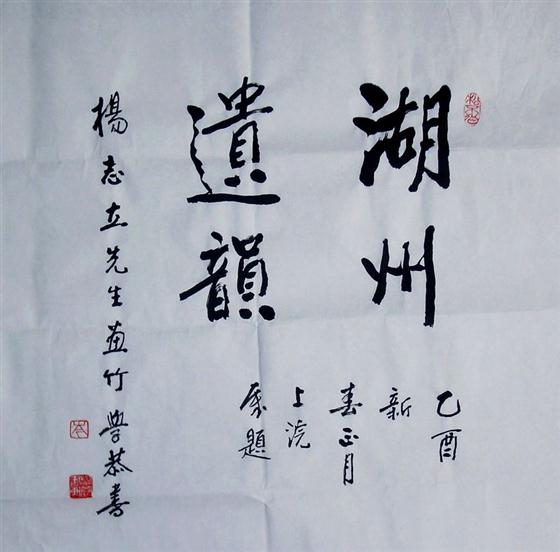 湖州
遺韻
乙酉
新
春正月
上浣
題
楊志立先生畫竹學恭書